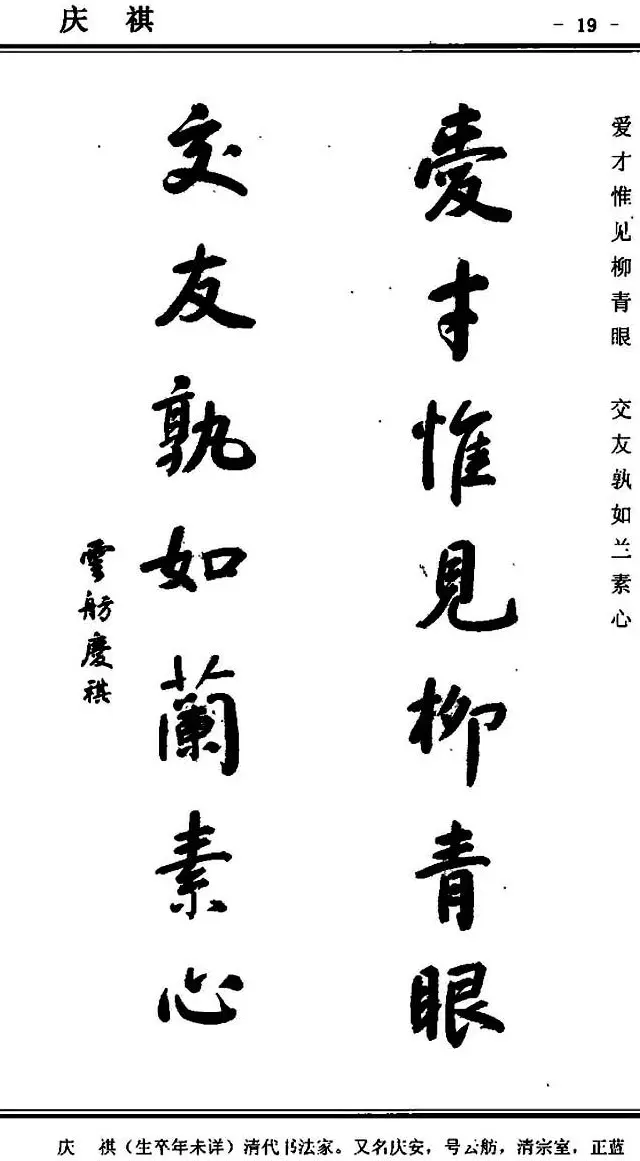 庆 祺
- 19 -
爱才惟见柳青眼 交友孰如兰素心
愛才惟見柳青眼
交友孰如蘭素心
雲舫慶祺
庆 祺（生卒年未详）清代书法家。又名庆安，号云舫，清宗室，正蓝